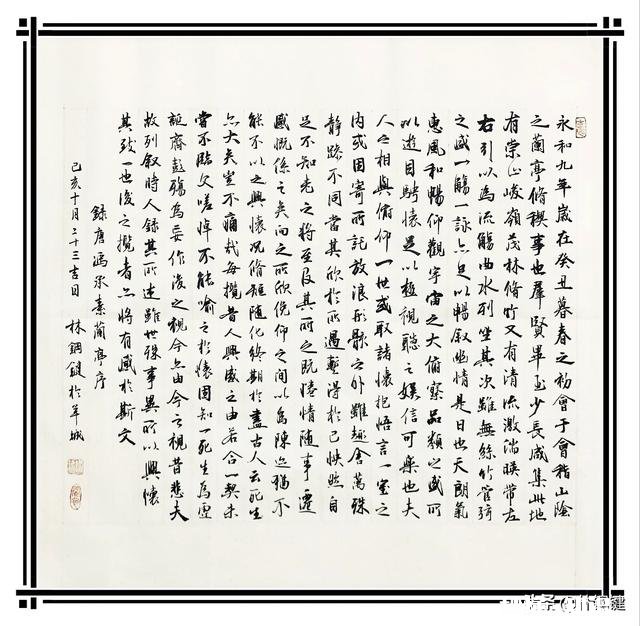 永和九年歲在癸丑暮春之初會于會稽山陰
之蘭亭脩稧事也羣賢畢至少長咸集此地
有崇山峻嶺茂林脩竹又有清流激湍暎帶左
右引以為流觴曲水列坐其次雖無絲竹管弦
之盛一觴一詠亦足以暢叙幽情是日也天朗氣
惠風和暢仰觀宇宙之大俯察品類之盛所
以遊目騁懷足以極視聽之娛信可樂也夫
人之相與俯仰一世或取諸懷抱悟言一室之
内或因寄所託放浪形骸之外雖趣舍萬殊
静躁不同當其欣於所遇暫得於己怏然自
足不知老之將至及其所之既惓情随事遷
感慨係之矣向之所欣俛仰之間以為陳迹猶不
能不以之興懷况脩短随化終期於盡古人云死生
亦大矣豈不痛哉每攬昔人興感之由若合一契未
嘗不臨文嗟悼不能喻之於懷固知一死生為虚
誕齊彭殤為妄作後之視今亦由今之視昔悲夫
故列叙時人録其所述雖世殊事異所以興懷
其致一也後之攬者亦将有感於斯文
録唐馮承素蘭亭序
己亥十月二十三吉日 林鋼鍵於羊城